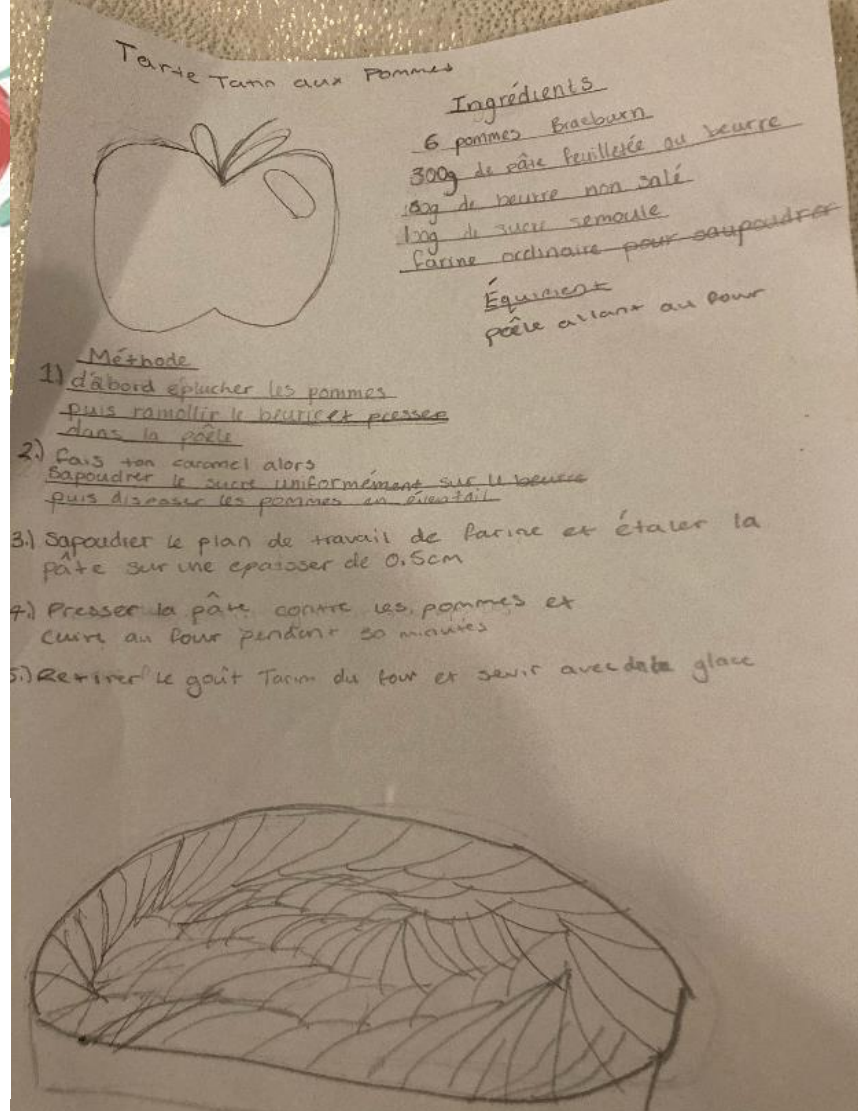 Tarte Tatin aux Pommes
Ingrédients
6 pommes Braeburn
300g de pâte feuilletée au beurre
de beurre non salé
de sucre semoule
farine ordinaire pour saupoudrer
Équipment
poêle allant au four
Méthode
1) d'abord éplucher les pommes
puis ramollir le beurre et presser
dans la poêle
2.) Fais ton caramel alors
Sapoudrer le sucre uniformément sur le beurre
puis disposer les pommes en éventail
3.) Sapoudrer le plan de travail de farine et étaler la
pâte sur une epaisser de 0.5cm
4.) Presser la pâte contre les pommes et
cuire au four pendant 30 minutes
5.) Retirer le goût Tatin du four et sevir avec glace